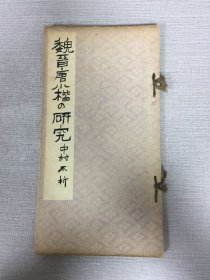 魏晋唐小楷の研究 中村不折